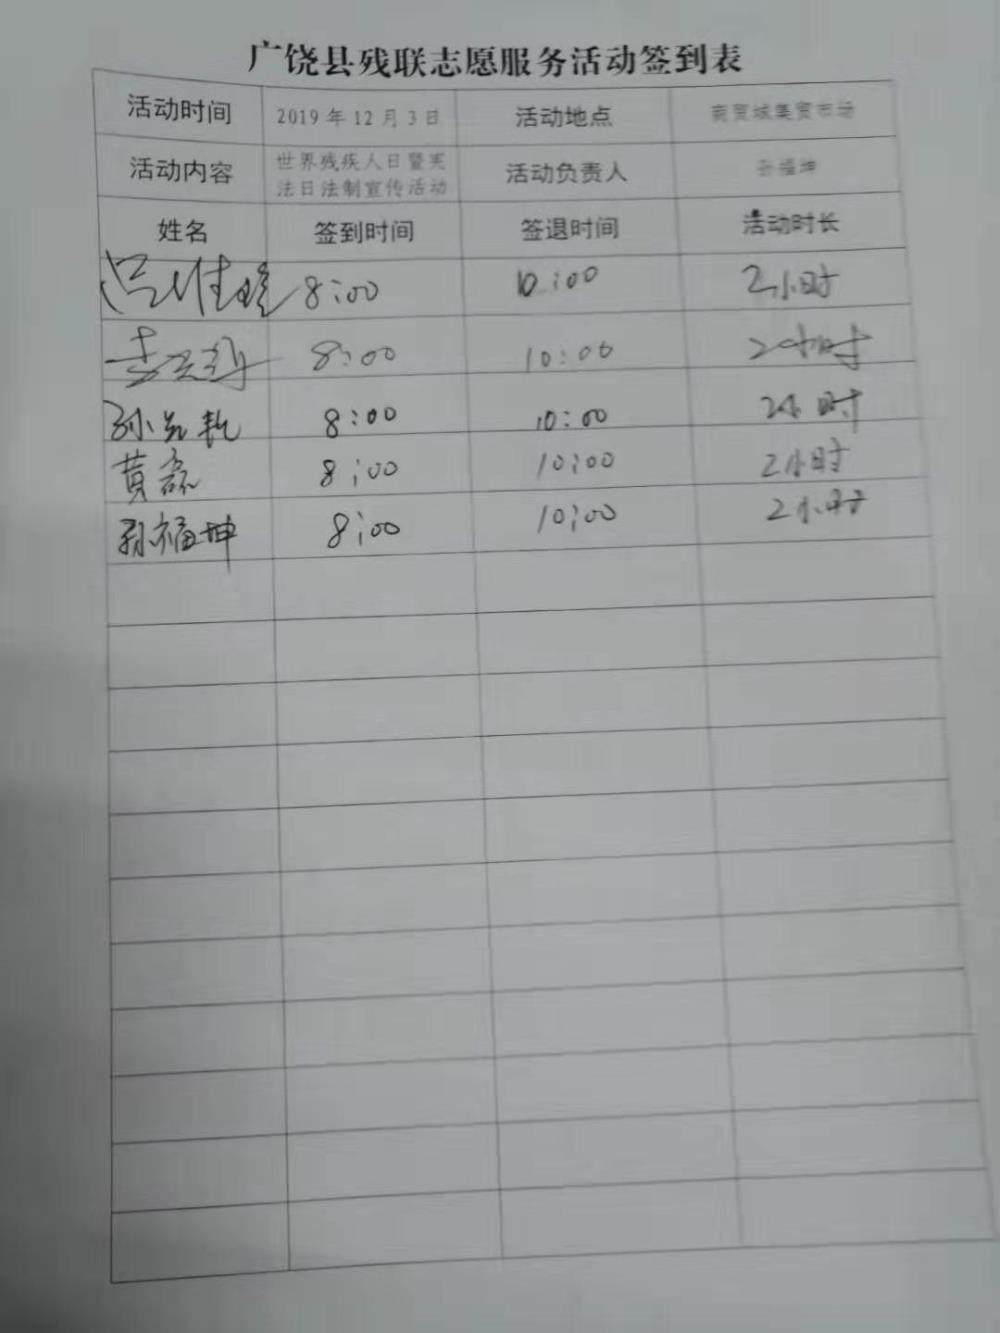 广饶县残联志愿服务活动签到表
活动时间 2019年12月3日 活动地点 商贸城集贸市场
活动内容 世界残疾人日暨宪法日法制宣传活动 活动负责人 孙福坤
姓名 签到时间 签退时间 活动时长
8:00 10:00 2小时
8:00 10:00 2小时
孙 8:00 10:00 2小时
黄磊 8:00 10:00 2小时
孙福坤 8:00 10:00 2小时